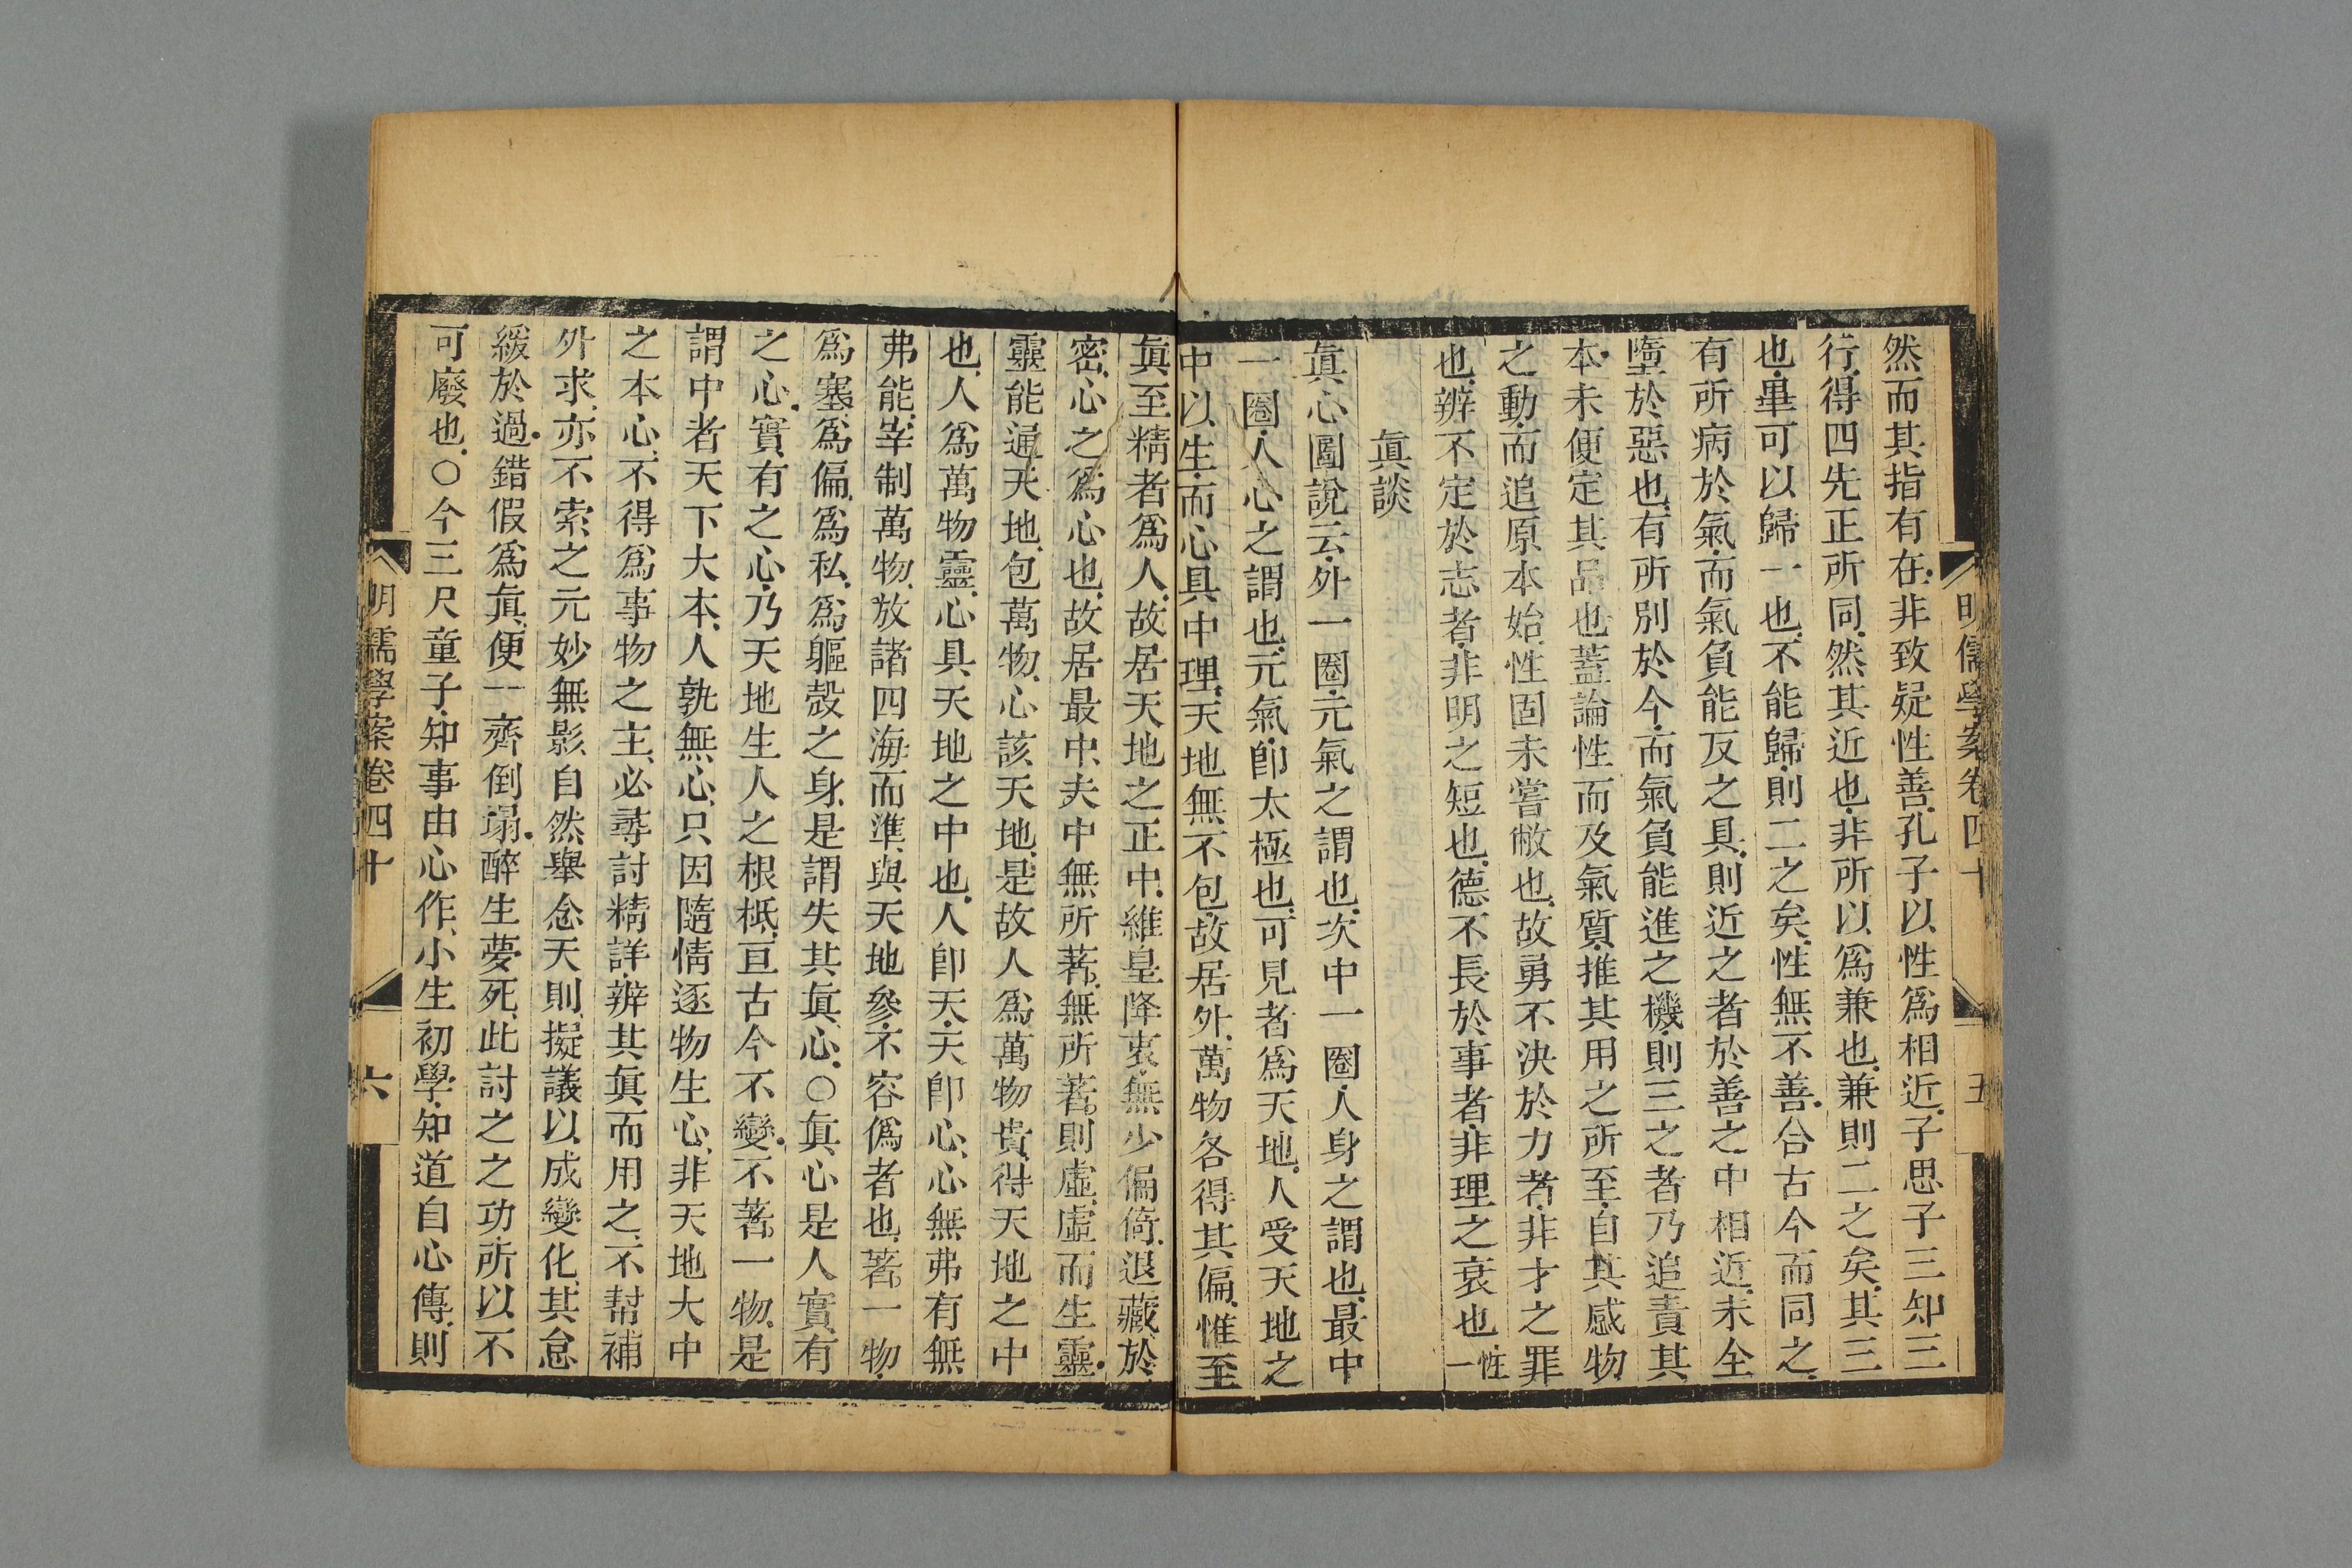 明儒學案卷四十
五
然而其指有在、非致疑性善、孔子以性爲相近、子思子三知三
行、得四先正所同、然其近也、非所以爲兼也、兼則二之矣、其三
也、畢可以歸一也、不能歸、則二之矣、性無不善、合古今而同之、
有所病於氣、而氣負能反之具、則近之者於善之中相近、未全
墮於惡也、有所別於今、而氣負能進之機、則三之者乃追責其
本、未便定其品也、蓋論性而及氣質、推其用之所至、自其感物
之動、而追原本始、性固未嘗敝也、故勇不決於力者、非才之罪
也、辨不定於志者、非明之短也、德不長於事者、非理之衰也性一
眞談
眞心圖說云、外一圈、元氣之謂也、次中一圈、人身之謂也、最中
一圈、人心之謂也、元氣、卽太極也、可見者爲天地、人受天地之
中以生、而心具中理、天地無不包、故居外、萬物各得其偏、惟至
眞至精者爲人、故居天地之正中、維皇降衷、無少偏倚、退藏於
密、心之爲心也、故居最中、夫中無所著、無所著、則虛、虛而生靈、
靈能通天地、包萬物、心該天地、是故人爲萬物貴、得天地之中
也、人爲萬物靈、心具天地之中也、人卽天、天卽心、心無弗有無
弗能、宰制萬物、放諸四海而準、與天地參、不容僞者也、著一物、
爲塞、爲偏、爲私、爲軀殼之身、是謂失其眞心、○眞心是人實有
之心、實有之心、乃天地生人之根柢、亘古今不變、不著一物、是
謂中者天下大本、人孰無心、只因隨情逐物生心、非天地大中
之本心、不得爲事物之主、必尋討精詳、辨其眞而用之、不幇補
外求、亦不索之元妙無影、自然舉念天則、擬議以成變化、其怠
緩於過、錯假爲眞、便一齊倒塌、醉生夢死、此討之之功、所以不
可廢也、○今三尺童子、知事由心作、小生初學、知道自心傳、則
明儒學案卷四十
六